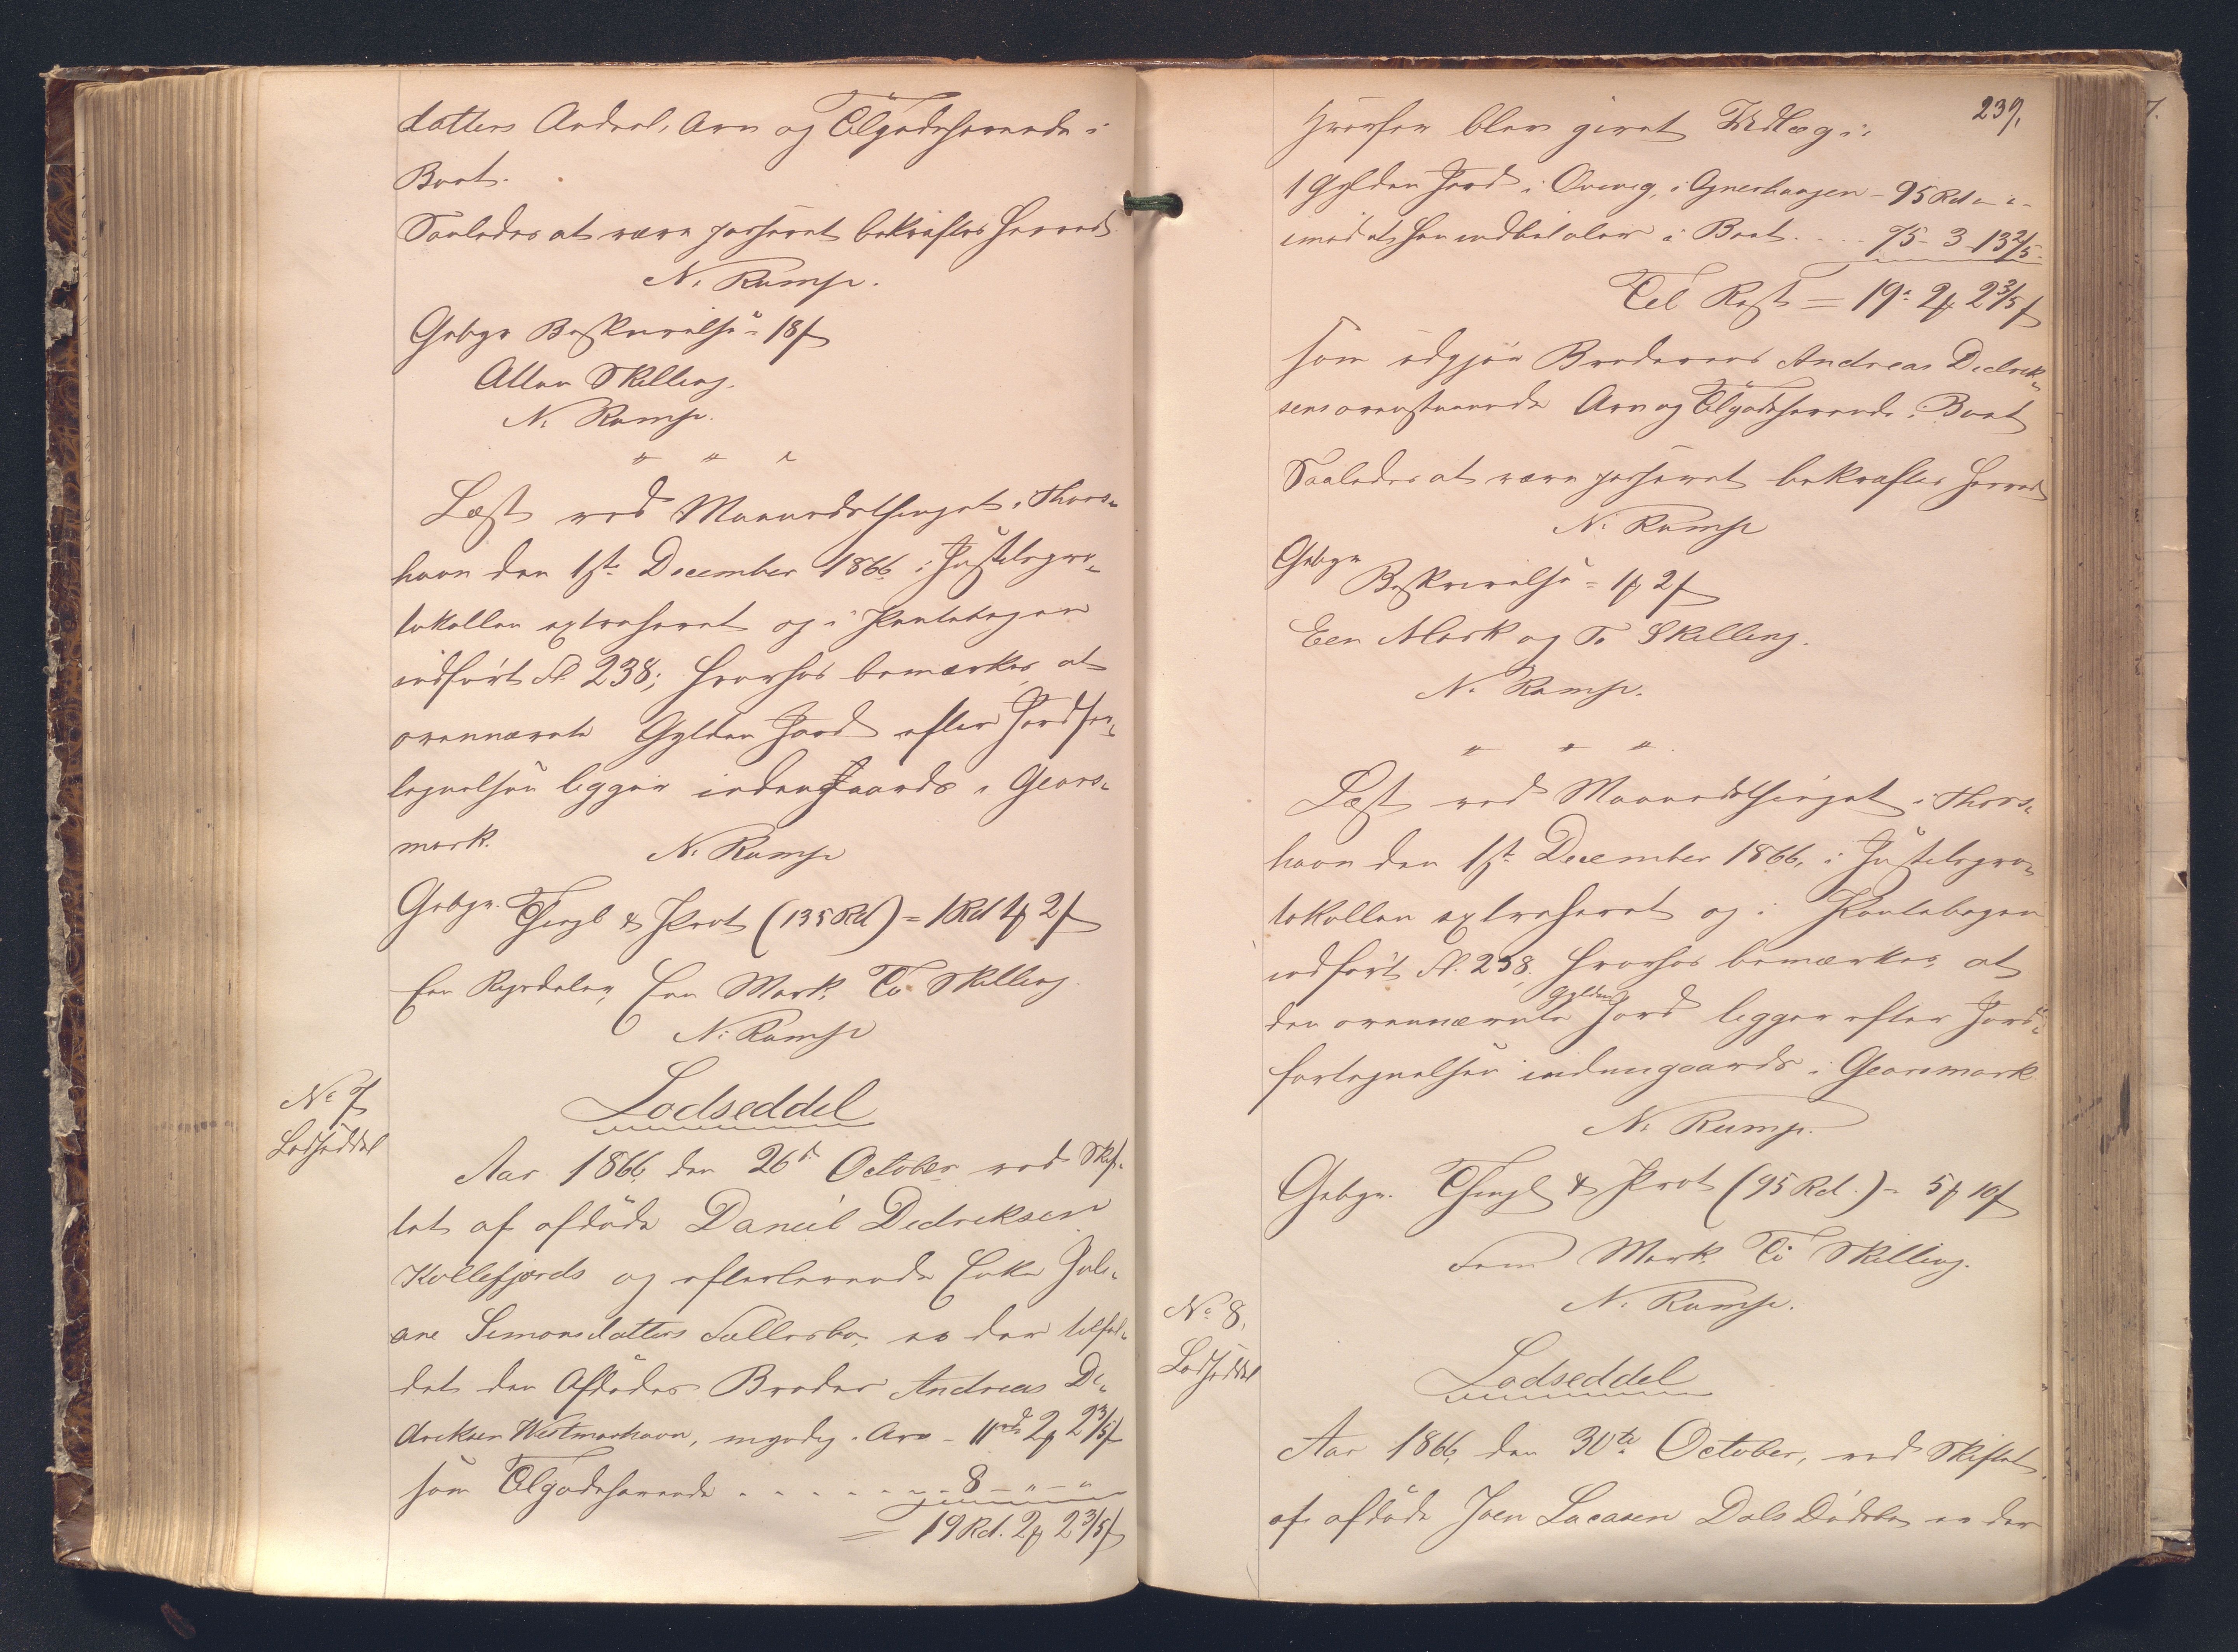 datters Andeel, Arv og Tilgodehavende i
Boet.
Saaledes at være passeret bekræftes herved
N. Rump.
Gebyr Beskrivelse = 18 ß
Atten Skilling.
N. Rump.
" " "
Læst ved Maanedsthinget i Thors-
havn den 1ste December 1866, i Justitspro-
tokollen extraheret og i Pantebogen
indført Fol. 238; hvorhos bemærkes, at
ovennævnte Gylden Jord efter Jordfor-
tegnelsen ligger indengaards i Gears-
mark.
N. Rump
Gebyr. Thingl & Prot (135 Rd) = 1 Rd 1 ꝟ 2 ß
Een Rigsdaler, Een Mark, To Skilling
N. Rump
No 7
Lodseddel
Lodseddel
Aar 1866, den 26de October ved Skif-
tet af afdøde Daniel Dedreksen
Kollefjords og efterlevende Enke Juli-
ane Simonsdatters Fællesbo, er der tilfal-
det den Afdødes Broder Andreas De-
dreksen Westmanhavn, myndig i Arv - 11 rd 2 ꝟ 2 3/5 ß
som Tilgodehavende . . . . . . . 8 - " - "
= 19 Rd. 2 ꝟ 2 3/5 ß
239.
hvorfor blev givet Udlæg i:
1 Gylden Jord i Qvivig, i Gjnerhaagen - 95 Rd " "
imod at han indbetaler i Boet. . . . 75 - 3 - 13 2/5
Til Rest = 19 " 2 ꝟ 2 3/5 ß
som udgjør Broderens Andreas Dedrek-
sens ovenstaaende Arv og Tilgodehavende i Boet
Saaledes at være passeret bekræftes herved
N. Rump
Gebyr
Beskrivelse = 1 ꝟ 2 ß
Een Mark og To Skilling.
N. Rump.
" " "
Læst ved Maanedsthinget i Thors-
havn den 1ste December 1866, i Justitspro-
tokollen extraheret og i Pantebogen
indført Fol. 238, hvorhos bemærkes, at
Gylden
den ovennævnte Jord ligger efter Jord-
fortegnelsen indengaards i Gearsmark
N. Rump.
Gebyr. Thingl & Prot (95 Rd.) = 5 ꝟ 10 ß
Fem Mark, Ti Skilling.
N. Rump.
No 8.
Lodseddel
Lodseddel
Aar 1866, den 30te October, ved Skiftet
af afdøde Joen Lucasen Dals Dødsbo er der